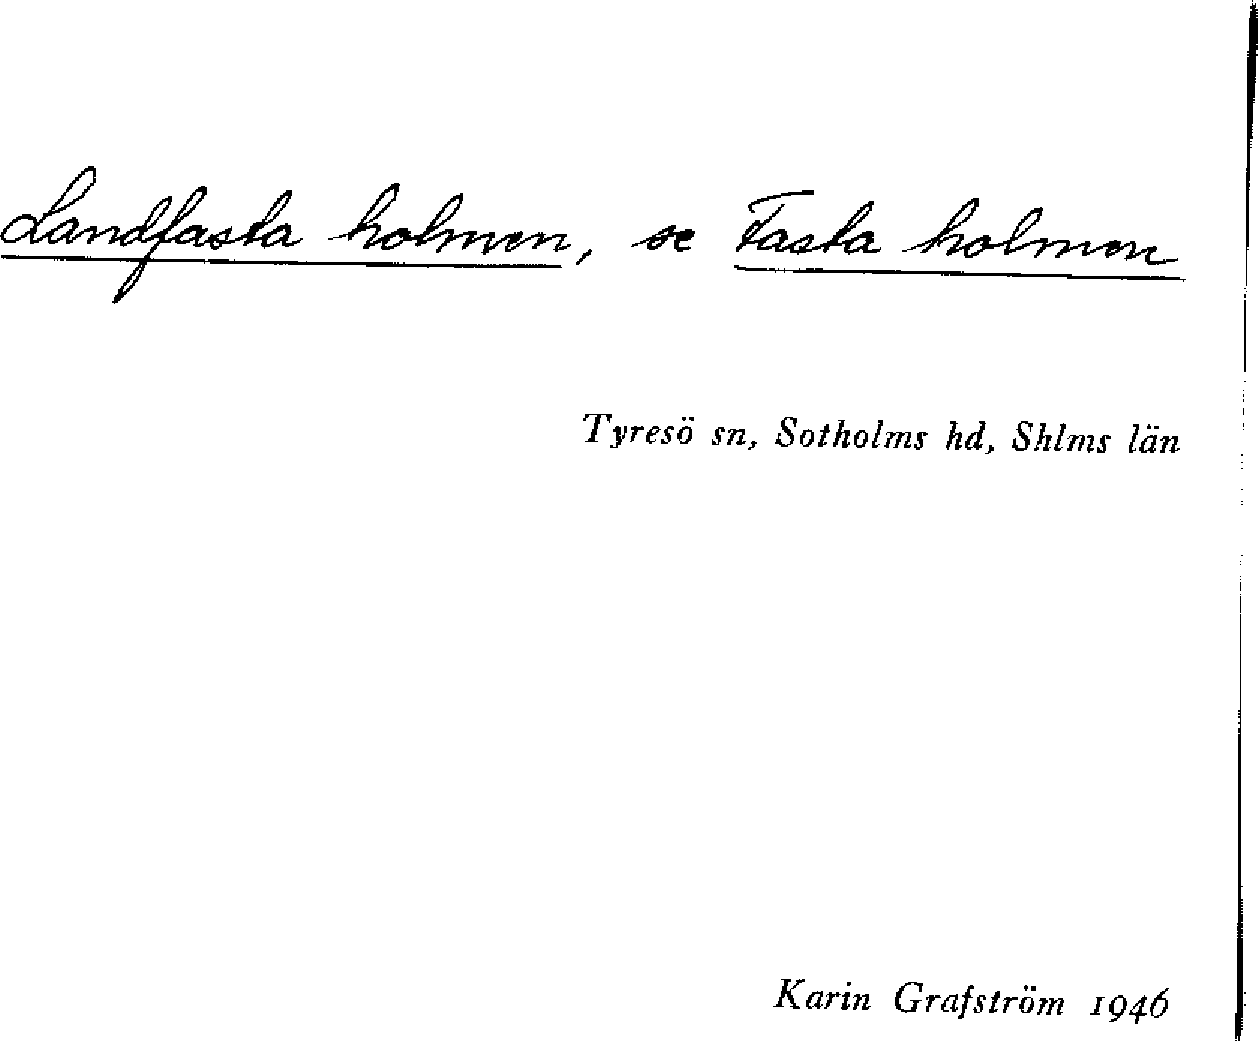 Landfasta holmen, se Fasta holmen
Tyresö sn, Sotholms hd, Shlms län
Karin Grafström 1946